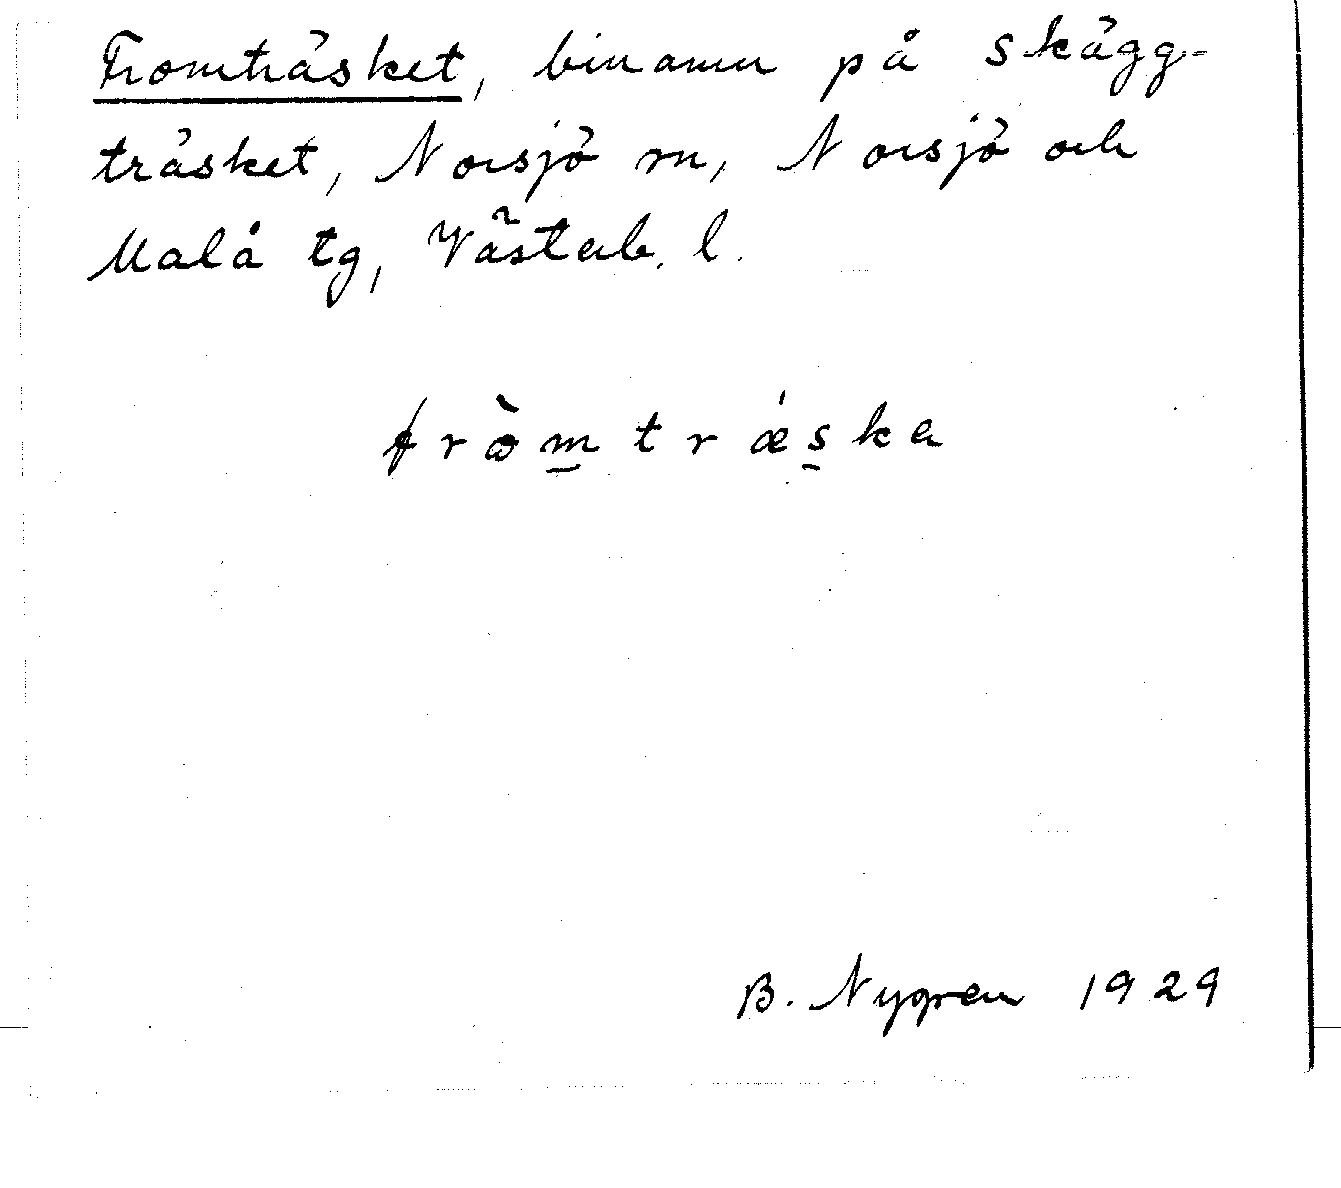 Fromträsket, binamn på Skägg-
träsket, Norsjö sn, Norsjö och
Malå tg, Västerb. l.
fròmtrǽska
B. Nygren 1929